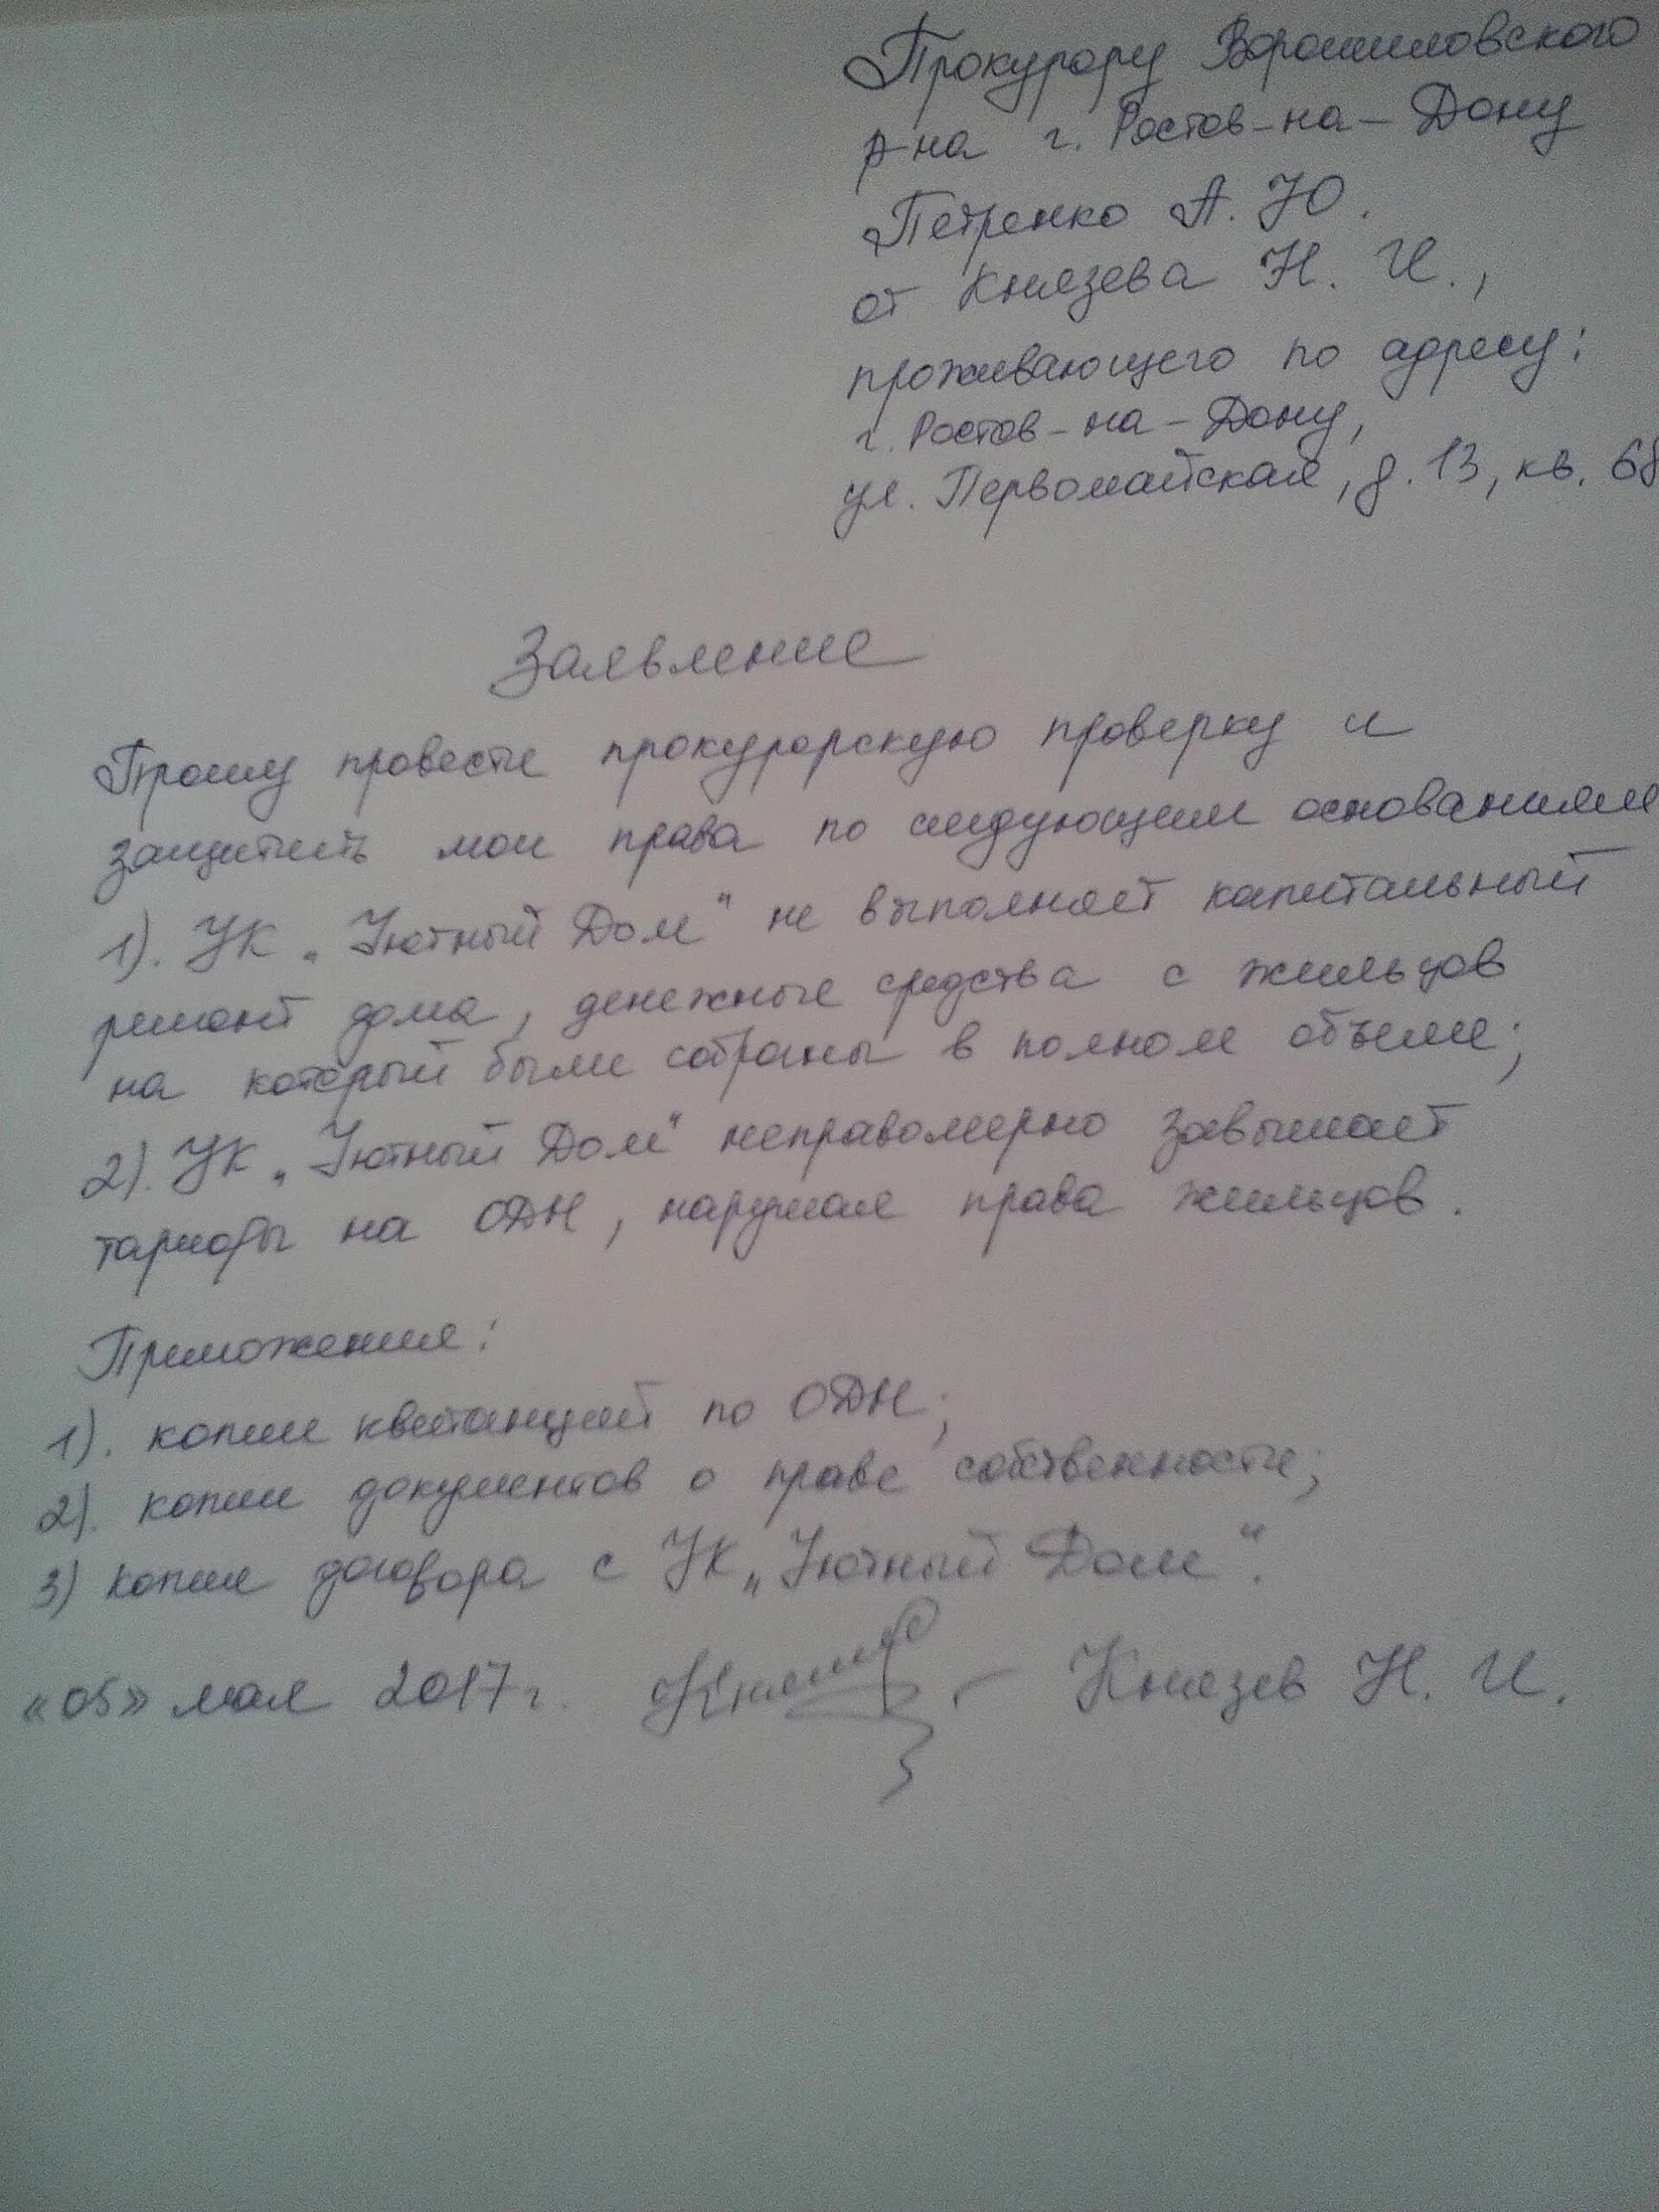 Прокурору Ворошиловского
р-на г. Ростов-на-Дону
Петренко А. Ю.
от Князева Н. И.,
проживающего по адресу:
г. Ростов-на-Дону,
ул. Первомайская, д. 13, кв. 68
Заявление
Прошу провести прокурорскую проверку и
защитить мои права по следующим основаниям
1). УК „Уютный Дом“ не выполняет капитальный
ремонт дома, денежные средства с жильцов
на который были собраны в полном объеме;
2). УК „Уютный Дом“ неправомерно завышает
тарифы на ОДН, нарушая права жильцов.
Приложения:
1). копии квитанций по ОДН;
2). копии документов о праве собственности;
3) копия договора с УК „Уютный Дом“.
«05» мая 2017г. – Князев Н. И.